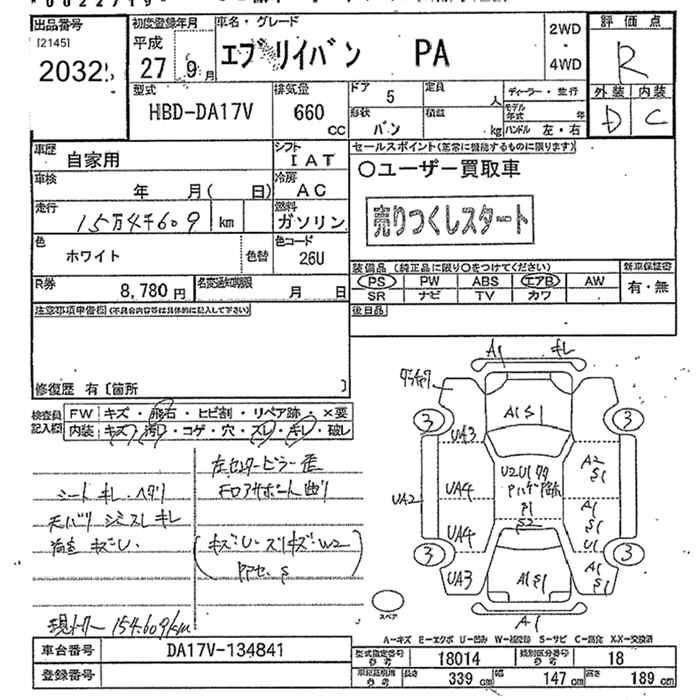 出品番号 初度登録年月 車名・グレード 評価点
[2145] 平成 2WD
2032 27 9月 エブリイバン PA ・ R
4WD
型式 排気量 ドア 5 定員 人 ディーラー・並行 外装 内装
HBD-DA17V 660 CC 形状 バン 積載 kg モデル年式 年 D C
ハンドル 左・右
車歴 自家用 シフト IAT セールスポイント(正常に機能するものに限ります)
車検 年 月( 日) 冷房 AC ○ユーザー買取車
走行 15万4千609 km 燃料 ガソリン 売りつくしスタート
色 ホワイト 色替 色コード 26U
装備品 (純正品に限り○をつけてください) 新車保証書
R券 8,780円 名変通知期限 月 日 PS PW ABS エアB AW 有・無
SR ナビ TV カワ
注意事項申告欄(不具合内容等は具体的に記入して下さい) 後日品
修復歴 有〔箇所 〕
検査員記入欄 FW キズ・飛石・ヒビ割・リペア跡・×要
内装 キズ・汚れ・コゲ・穴・スレ・キレ・破レ
A1 キレ
A1 S1
3 3
UA3
左センターピラー歪
シート キレ・ヘタリ フロアサポート曲リ
U2U1
A2
S1
UA2 UA4
P1
S2
A1
S1
天バリ シミ スレ キレ
荷室 キズU・ (キズU・スリキズ・W2
UA4 U1
3 3
UA3 A1S1 A1
S1
A1
スペア
現メーター 154,609km
A-キズ E-エクボ U-凹み W-補修跡 S-サビ C-腐食 XX-交換済
車台番号 DA17V-134841 型式指定番号 参考 18014 類別区分番号 参考 18
登録番号 車両諸元 参考 長さ 339cm 幅 147cm 高さ 189cm